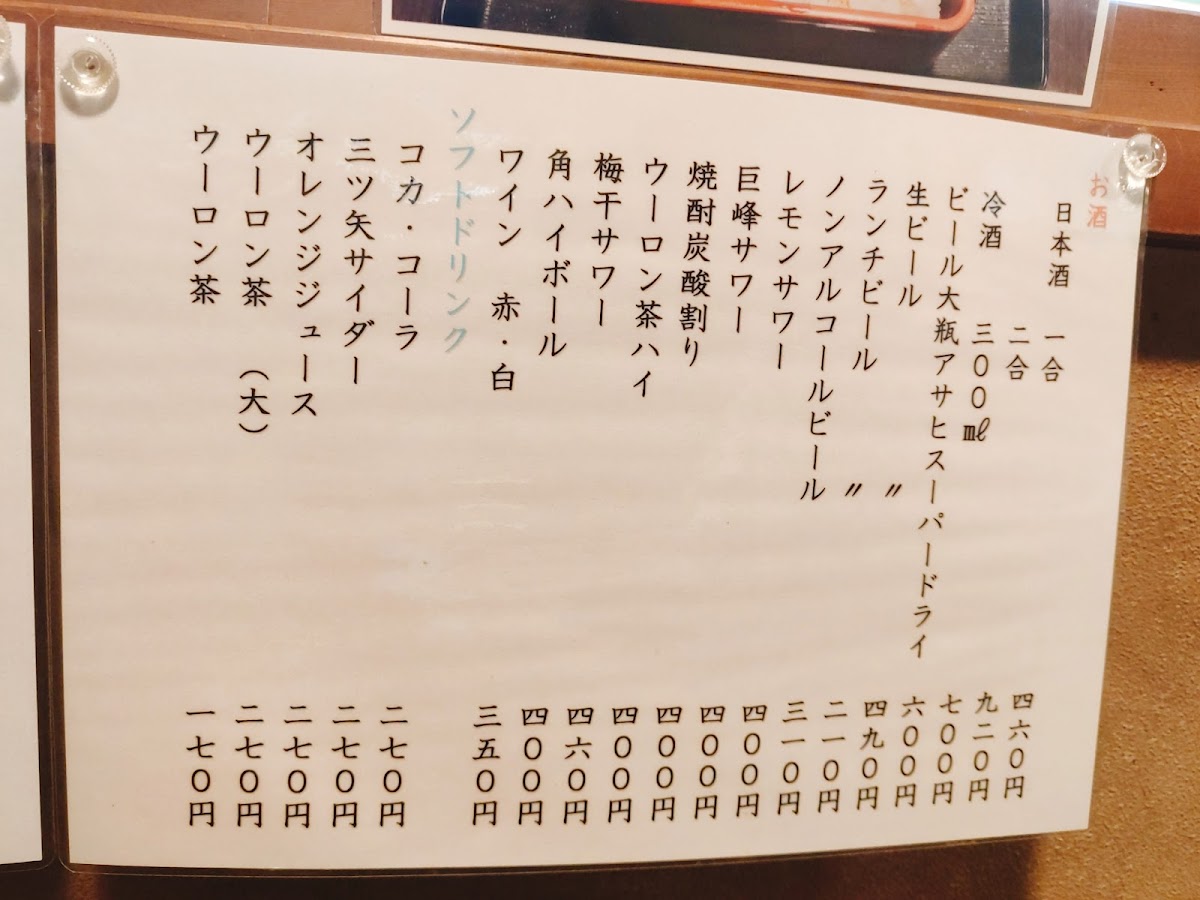 お酒
日本酒 一合 四六〇円
二合 九二〇円
冷酒 三〇〇㎖ 七〇〇円
ビール大瓶アサヒスーパードライ 六〇〇円
生ビール 〃 四九〇円
ランチビール 〃 二一〇円
ノンアルコールビール 三一〇円
レモンサワー 四〇〇円
巨峰サワー 四〇〇円
焼酎炭酸割り 四〇〇円
ウーロン茶ハイ 四〇〇円
梅干サワー 四六〇円
角ハイボール 四〇〇円
ワイン 赤・白 三五〇円
ソフトドリンク
コカ・コーラ 二七〇円
三ツ矢サイダー 二七〇円
オレンジジュース 二七〇円
ウーロン茶 (大) 二七〇円
ウーロン茶 一七〇円